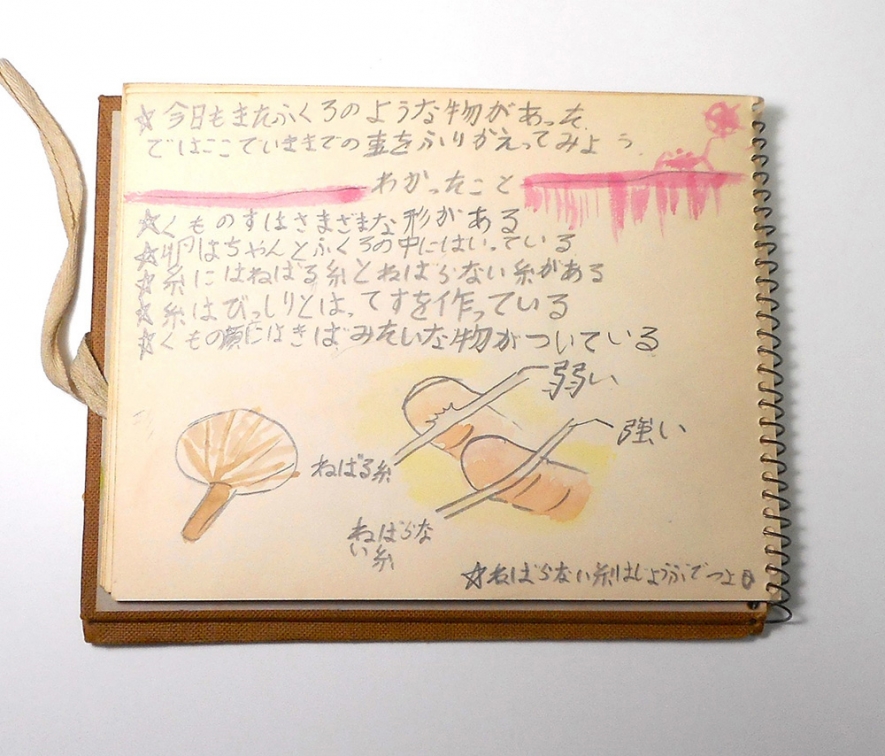 ☆今日もまたふくろのような物があった
ではここでいままでの事をふりかえってみよう
わかったこと
☆くものすはさまざまな形がある
☆卵はちゃんとふくろの中にはいっている
☆糸にはねばる糸とねばらない糸がある
☆糸はびっしりとはってすを作っている
☆くもの顔にはきばみたいな物がついている
弱い
強い
ねばる糸
ねばらな
い糸
☆ねばらない糸はじょうぶでつよ